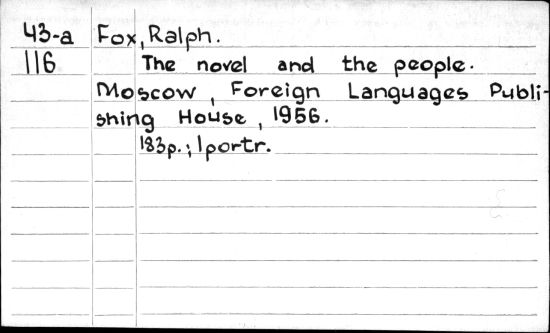 43-a Fox, Ralph.
116 The novel and the people.
Moscow, Foreign Languages Publi-
shing House, 1956.
183p.; 1portr.